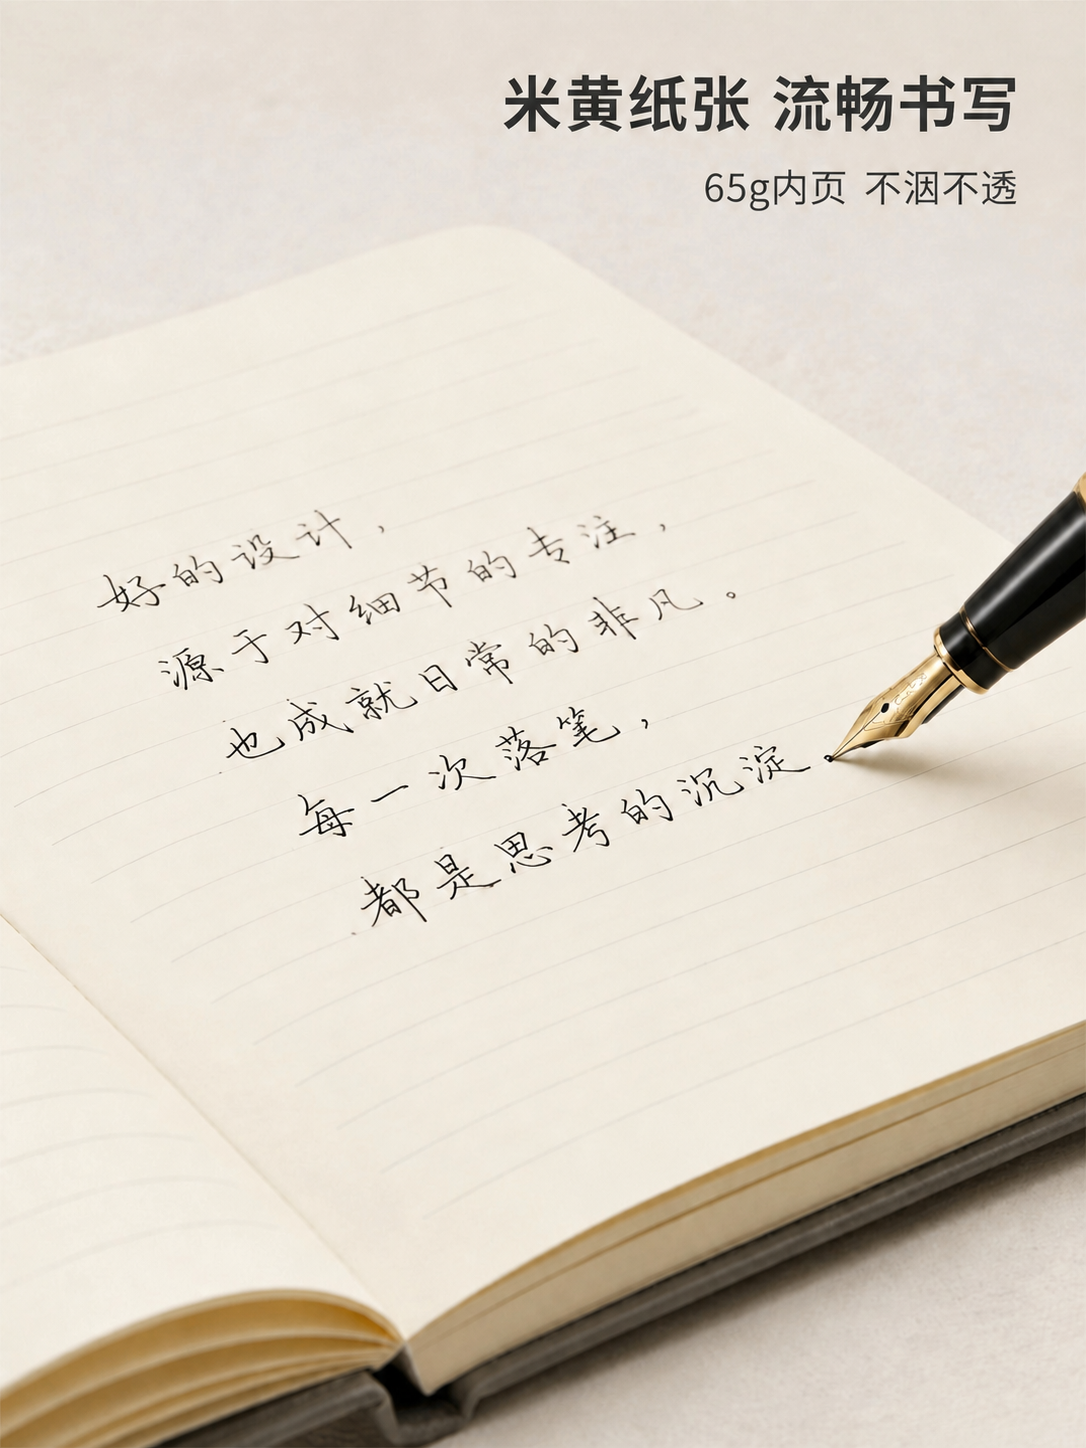 米黄纸张 流畅书写
65g内页 不洇不透
好的设计，
源于对细节的专注，
也成就日常的非凡。
每一次落笔，
都是思考的沉淀